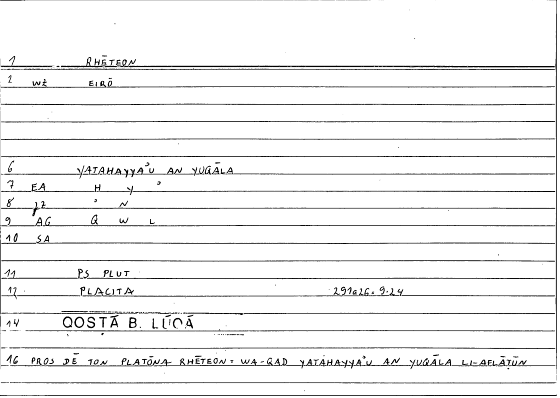 1 RHĒTEON
2 WŻ EIRŌ
6 YATAHAYYA'U AN YUQĀLA
7 EA H Y '
8 ' N
9 AG Q W L
10 SA
11 PS PLUT
12 PLACITA 291a26. 9.24
14 QOSṬĀ B. LŪQĀ
16 PROS DĒ TON PLATŌNA RHĒTEON = WA-QAD YATAHAYYA'U AN YUQĀLA LI-AFLĀṬŪN